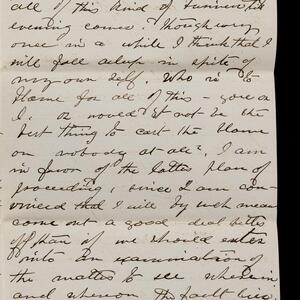 all of this kind of
evening comes. Though every
once in a while I think that I
will fall asleep in spite of
my own self. Who is to
blame for all of this - you or
I, or would it not be the
best thing to cast the blame
on nobody at all? I am
in favor of the latter plan of
proceeding, since I am con-
vinced that I will by such means
come out a good deal better
off than if we should enter
into an examination of
the matter to see wherein
and whereon the fault lies.